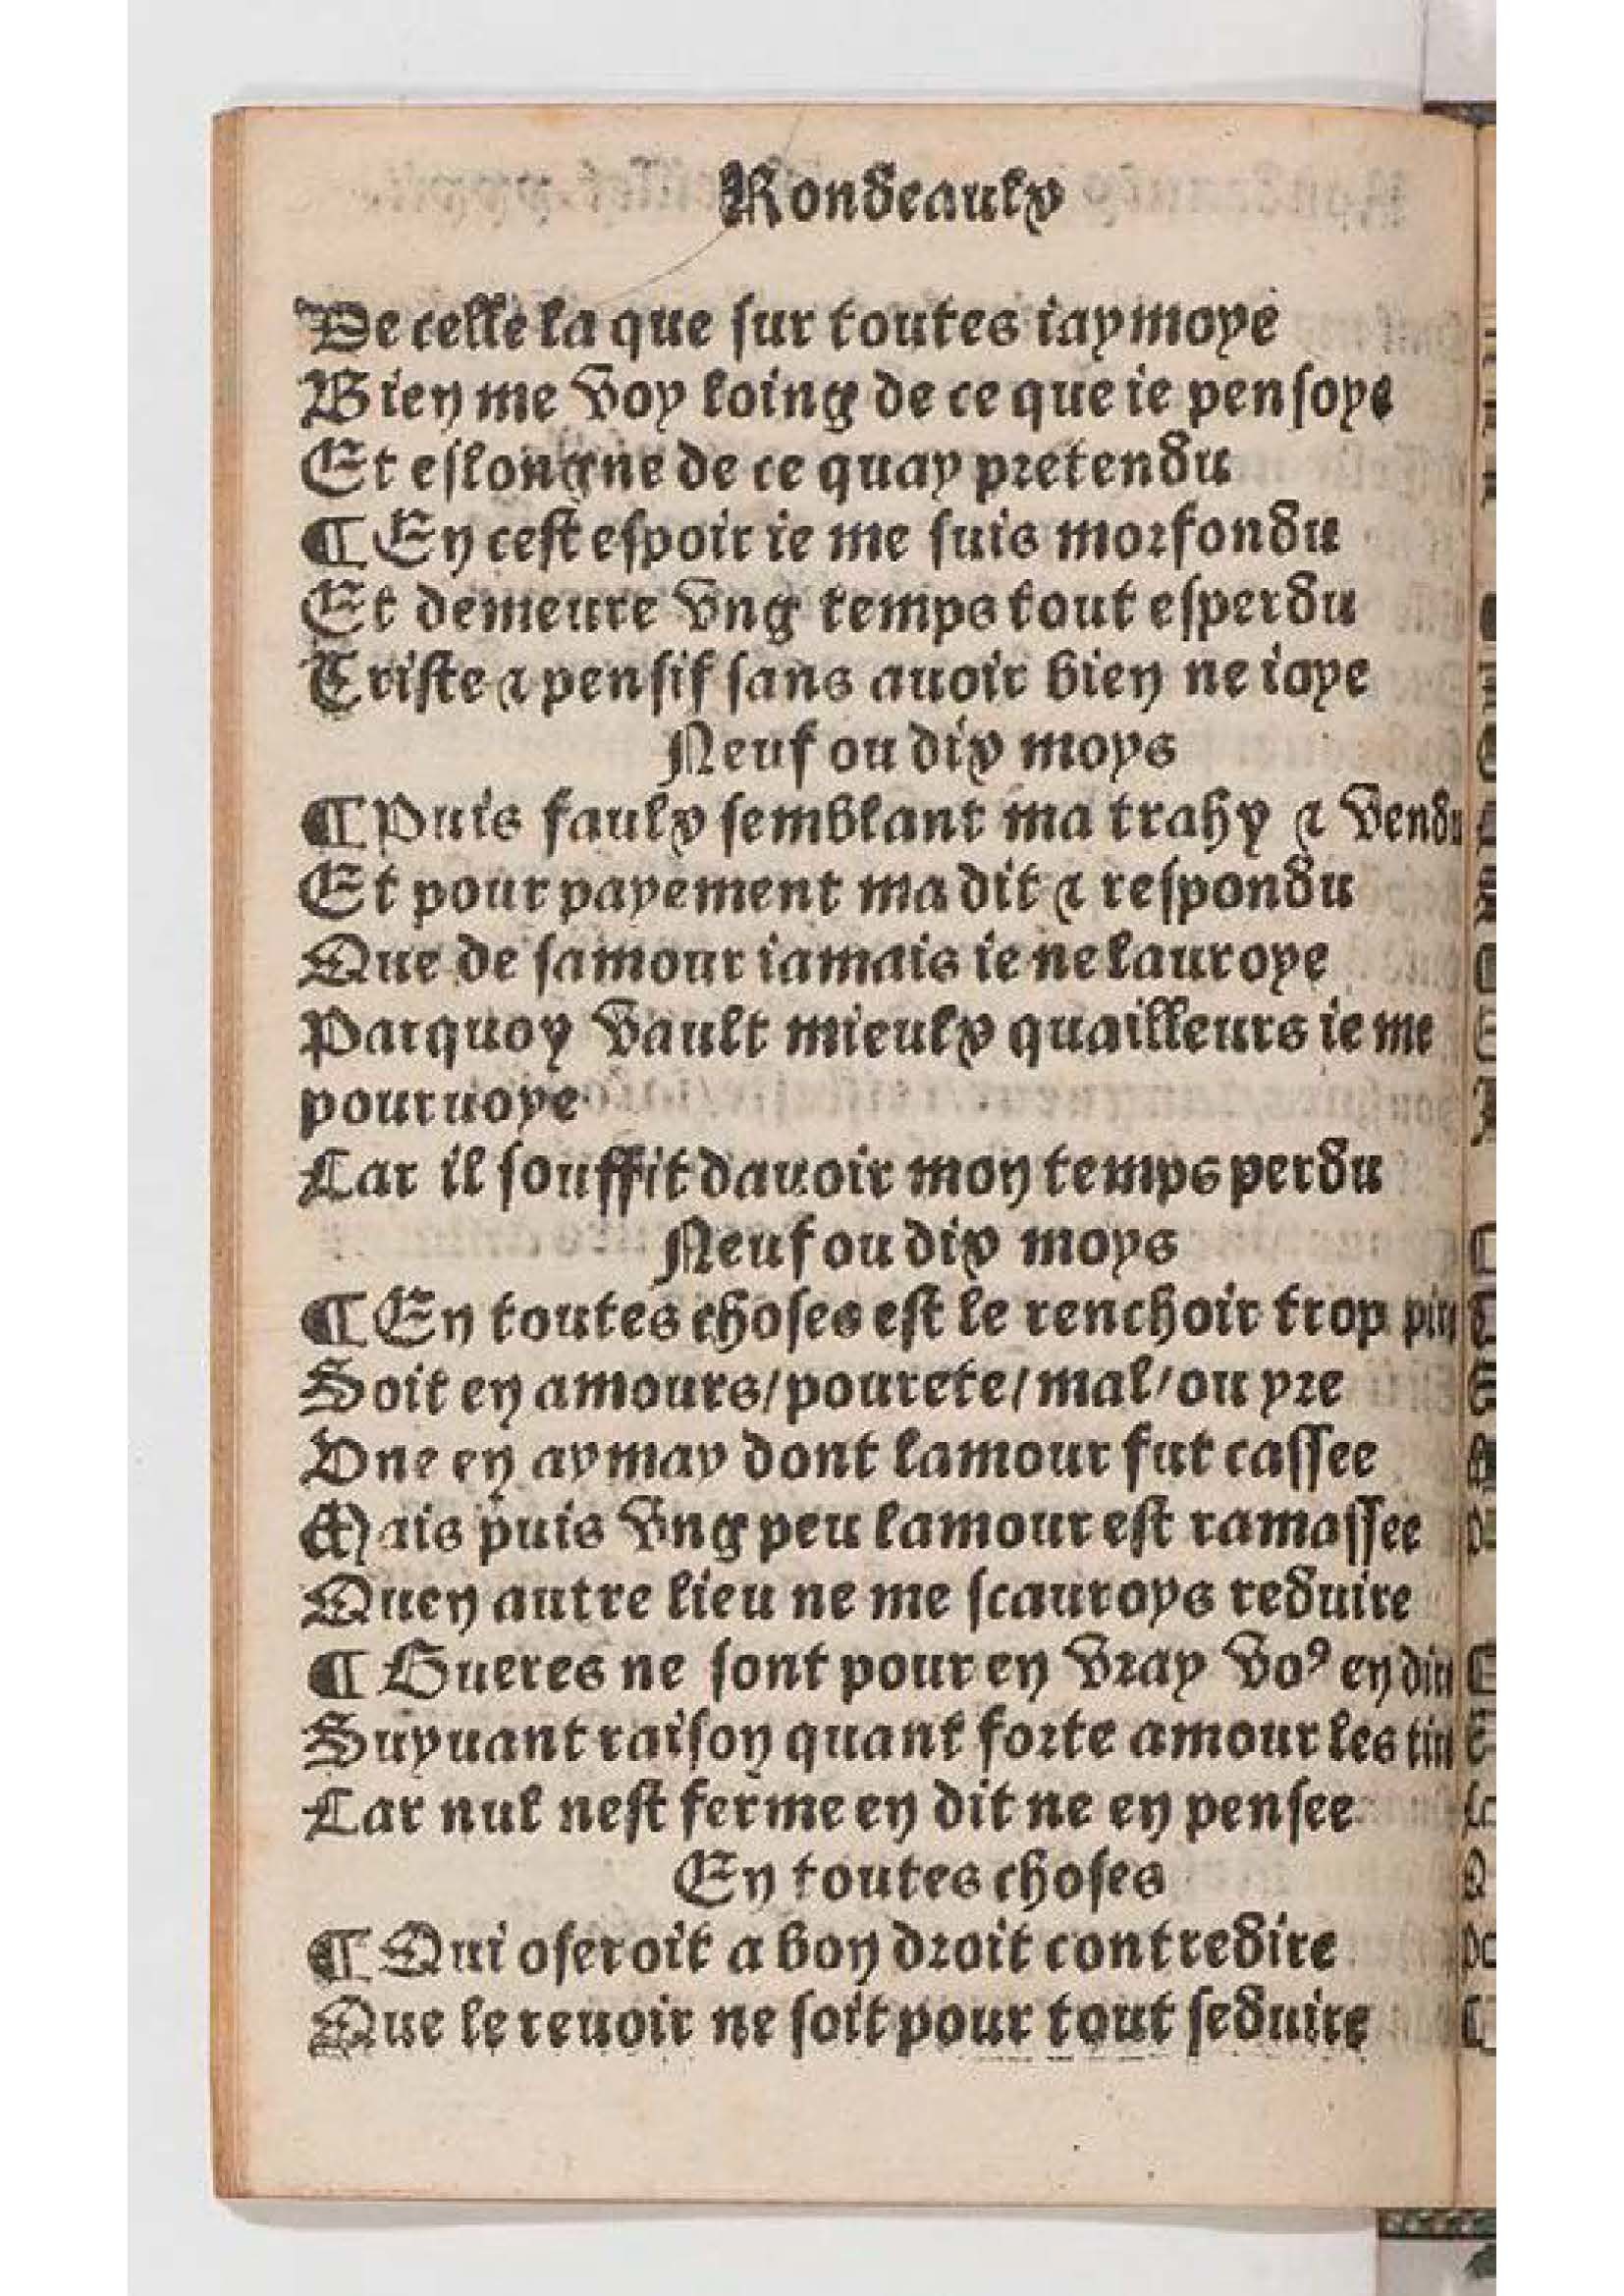 Rondeaulx
De celle la que sur toutes iaymoye
Bien me voy loing de ce que ie pensoye
Et eslongne de ce quay pretendu
¶ En cest espoir ie me suis morfondu
Et demeure vng temps tout esperdu
Triste & pensif sans auoir bien ne ioye
Neuf ou dix moys
¶ Puis faulx semblant ma trahy & vendu
Et pour payement ma dit & respondu
Que de samour iamais ie ne lauroye
Parquoy vault mieulx quailleurs ie me
pouruoye
Car il souffit dauoir mon temps perdu
Neuf ou dix moys
¶ En toutes choses est le renchoir trop pire
Soit en amours/pourete/mal/ou yre
Vne en aymay dont lamour fut cassee
Mais puis vng peu lamour est ramassee
Quen autre lieu ne me scauroys reduire
¶ Gueres ne sont pour en vray voꝰ en dire
Suyuant raison quant forte amour les tire
Car nul nest ferme en dit ne en pensee
En toutes choses
¶ Qui oseroit a bon droit contredire
Que le reuoir ne soit pour tout seduire